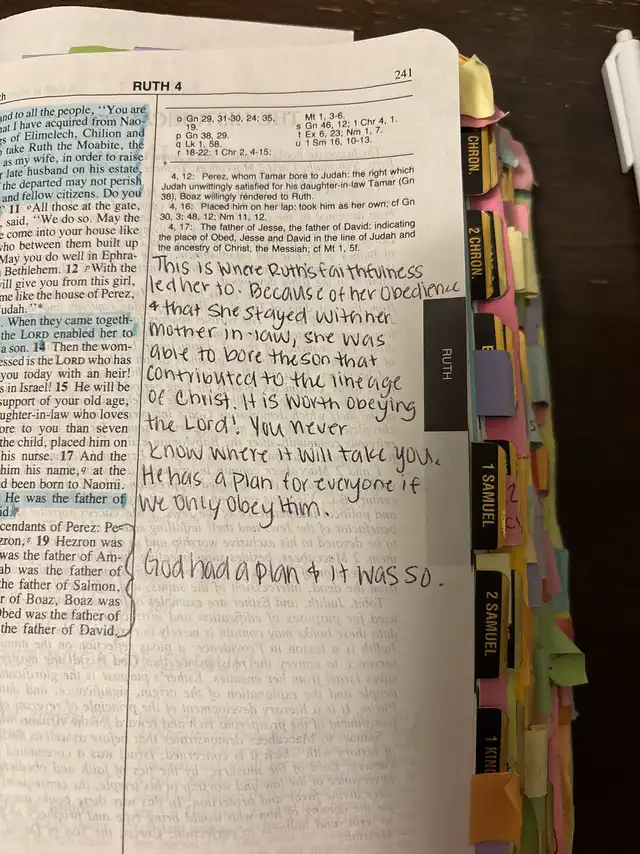 RUTH 4
241
and to all the people, "You are
hat I have acquired from Nao-
gs of Elimelech, Chilion and
take Ruth the Moabite, the
as my wife, in order to raise
r late husband on his estate,
the departed may not perish
and fellow citizens. Do you
11 All those at the gate,
said, "We do so. May the
come into your house like
who between them built up
May you do well in Ephra-
Bethlehem. 12 With the
will give you from this girl,
me like the house of Perez,
udah."*
. When they came togeth-
the LORD enabled her to
a son. 14 Then the wom-
essed is the LORD who has
you today with an heir!
s in Israel! 15 He will be
support of your old age,
ughter-in-law who loves
ore to you than seven
the child, placed him on
his nurse. 17 And the
him his name, q at the
d been born to Naomi.
He was the father of
id.*
cendants of Perez: Pe-
zron, s 19 Hezron was
was the father of Am-
ab was the father of
the father of Salmon,
r of Boaz, Boaz was
Obed was the father of
the father of David.
o Gn 29, 31-30, 24; 35,
19.
p Gn 38, 29.
q Lk 1, 58.
r 18-22: 1 Chr 2, 4-15;
Mt 1, 3-6.
s Gn 46, 12; 1 Chr 4, 1.
t Ex 6, 23; Nm 1, 7.
u 1 Sm 16, 10-13.
4, 12: Perez, whom Tamar bore to Judah: the right which
Judah unwittingly satisfied for his daughter-in-law Tamar (Gn
38), Boaz willingly rendered to Ruth.
4, 16: Placed him on her lap: took him as her own; cf Gn
30, 3; 48, 12; Nm 11, 12.
4, 17: The father of Jesse, the father of David: indicating
the place of Obed, Jesse and David in the line of Judah and
the ancestry of Christ, the Messiah; cf Mt 1, 5f.
This is where Ruth's faithfulness
led her to. Because of her Obedience
& that she stayed with her
mother in-law, she was
able to bore the son that
contributed to the lineage
of Christ. It is worth obeying
the Lord! You never
know where it will take you.
He has a plan for everyone if
we only obey Him.
God had a plan & it was so.
CHRON.
2 CHRON
RUTH
1 SAMUEL
2 SAMUEL
1 KING